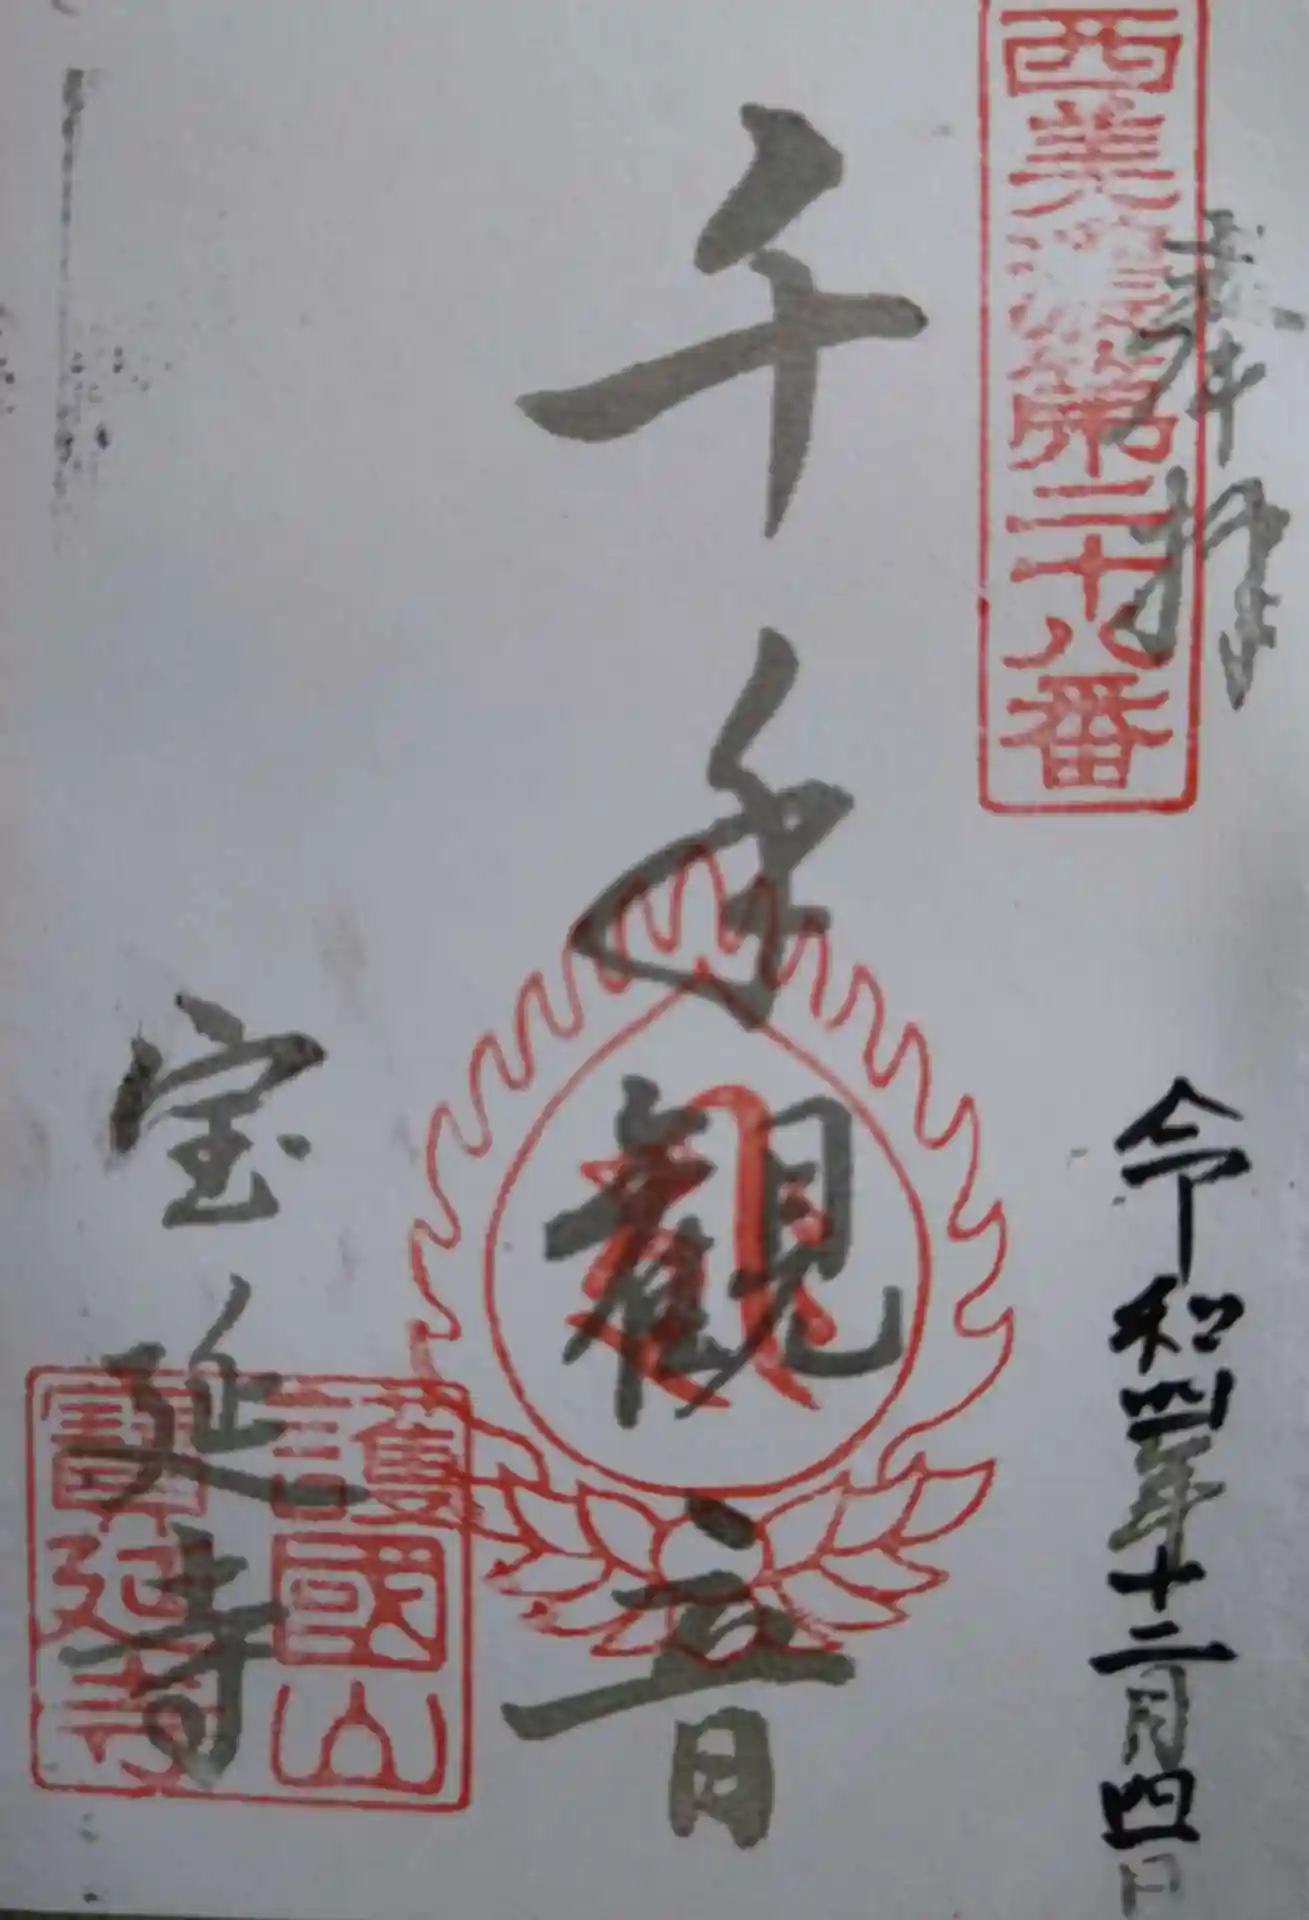 奉拝
西美濃第二十八番
令和四年十二月四日
千手観音
宝延寺
護國山
寶延寺